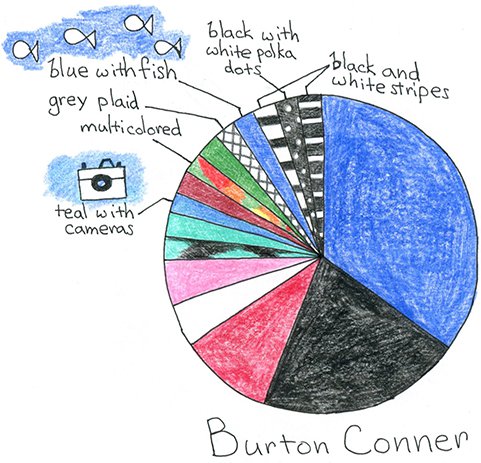 black with
white polka
dots
black and
white stripes
blue with fish
grey plaid
multicolored
teal with
cameras
Burton Conner